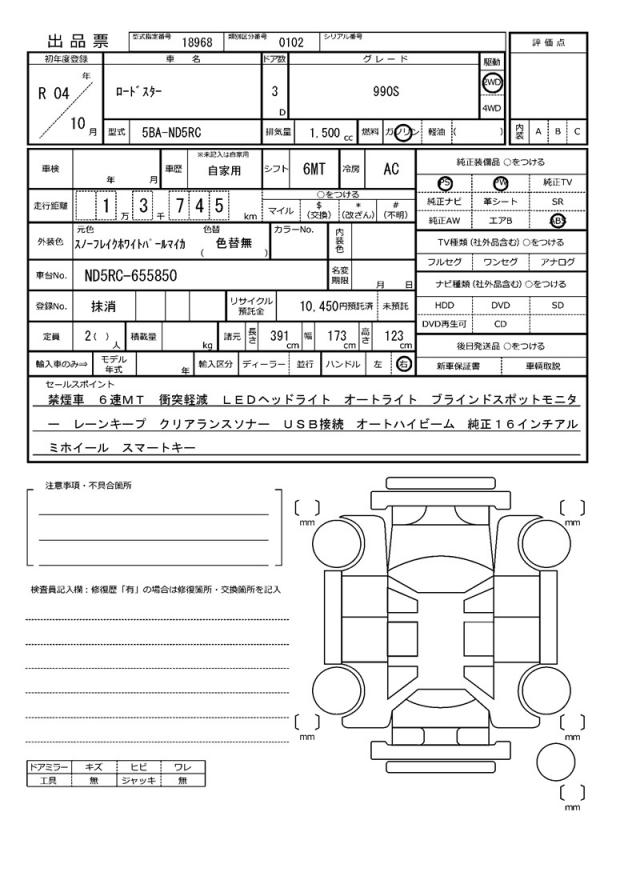 出品票 型式指定番号 18968 類別区分番号 0102 シリアル番号
評価点
初年度登録 車名 ドア数 グレード 駆動
R 04 年 10 月 ロードスター 3 D 990S 2WD 4WD
型式 5BA-ND5RC 排気量 1.500 cc 燃料 ガソリン 軽油 ( ) 内装 A B C
車検 年 月 車歴 ※未記入は自家用 自家用 シフト 6MT 冷房 AC
純正装備品 ○をつける
PS PW 純正TV
純正ナビ 革シート SR
純正AW エアB ABS
走行距離 1 万 3 千 7 4 5 km
○をつける
マイル $ (交換) * (改ざん) # (不明)
外装色 元色 スノーフレイクホワイトパールマイカ 色替 ( 色替無 ) カラーNo. 内装色
TV種類 (社外品含む) ○をつける
フルセグ ワンセグ アナログ
車台No. ND5RC-655850 名変期限 月 日
ナビ種類 (社外品含む) ○をつける
HDD DVD SD
DVD再生可 CD
登録No. 抹消 リサイクル預託金 10,450円預託済 未預託
定員 2( ) 人 積載量 kg 諸元 長さ 391 cm 幅 173 cm 高さ 123 cm
後日発送品 ○をつける
新車保証書 車輌取説
輸入車のみ⇒ モデル年式 年 輸入区分 ディーラー 並行 ハンドル 左 右
セールスポイント
禁煙車 6速MT 衝突軽減 LEDヘッドライト オートライト ブラインドスポットモニタ
ー レーンキープ クリアランスソナー USB接続 オートハイビーム 純正16インチアル
ミホイール スマートキー
注意事項・不具合箇所
mm
mm
検査員記入欄：修復歴「有」の場合は修復箇所・交換箇所を記入
mm
mm
ドアミラー キズ ヒビ ワレ
工具 無 ジャッキ 無
mm